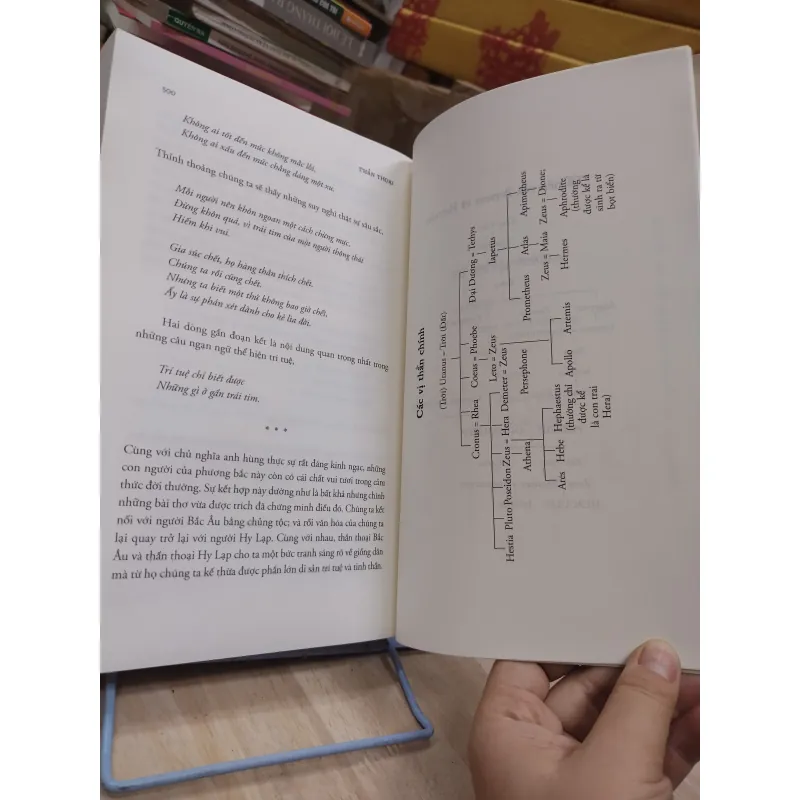 QUYỀN BA
LỄ HỘI THÁNG BA
500
THẦN THOẠI
Không ai tốt đến mức không mắc lỗi,
Không ai xấu đến mức chẳng đáng một xu.
Thỉnh thoảng chúng ta sẽ thấy những suy nghĩ thật sự sâu sắc,
Mỗi người nên khôn ngoan một cách chừng mực,
Đừng khôn quá, vì trái tim của một người thông thái
Hiếm khi vui.
Gia súc chết, họ hàng thân thích chết,
Chúng ta rồi cũng chết.
Nhưng ta biết một thứ không bao giờ chết,
Ấy là sự phán xét dành cho kẻ lìa đời.
Hai dòng gần đoạn kết là nội dung quan trọng nhất trong
những câu ngạn ngữ thể hiện trí tuệ,
Trí tuệ chỉ biết được
Những gì ở gần trái tim.
* * *
Cùng với chủ nghĩa anh hùng thực sự rất đáng kinh ngạc, những
con người của phương bắc này còn có cái chất vui tươi trong cảm
thức đời thường. Sự kết hợp này dường như là bất khả nhưng chính
những bài thơ vừa được trích đã chứng minh điều đó. Chúng ta kết
nối với người Bắc Âu bằng chủng tộc; và rồi văn hóa của chúng ta
lại quay trở lại với người Hy Lạp. Cùng với nhau, thần thoại Bắc
Âu và thần thoại Hy Lạp cho ta một bức tranh sáng rõ về giống dân
mà từ họ chúng ta kế thừa được phần lớn di sản trí tuệ và tinh thần.
Các vị thần chính
(Trời) Uranus = Trời (Đất)
Cronus = Rhea Coeus = Phoebe Đại Dương = Tethys
Leto = Zeus Iapetus
Hestia Pluto Poseidon Zeus = Hera Demeter = Zeus
Prometheus Atlas Apimetheus
Athena Persephone Zeus = Maia Zeus = Dione;
Ares Hebe Hephaestus Apollo Artemis Hermes Aphrodite
(thường chỉ
được kể
là con trai
Hera)
(thường
được kể là
sinh ra từ
bọt biển)